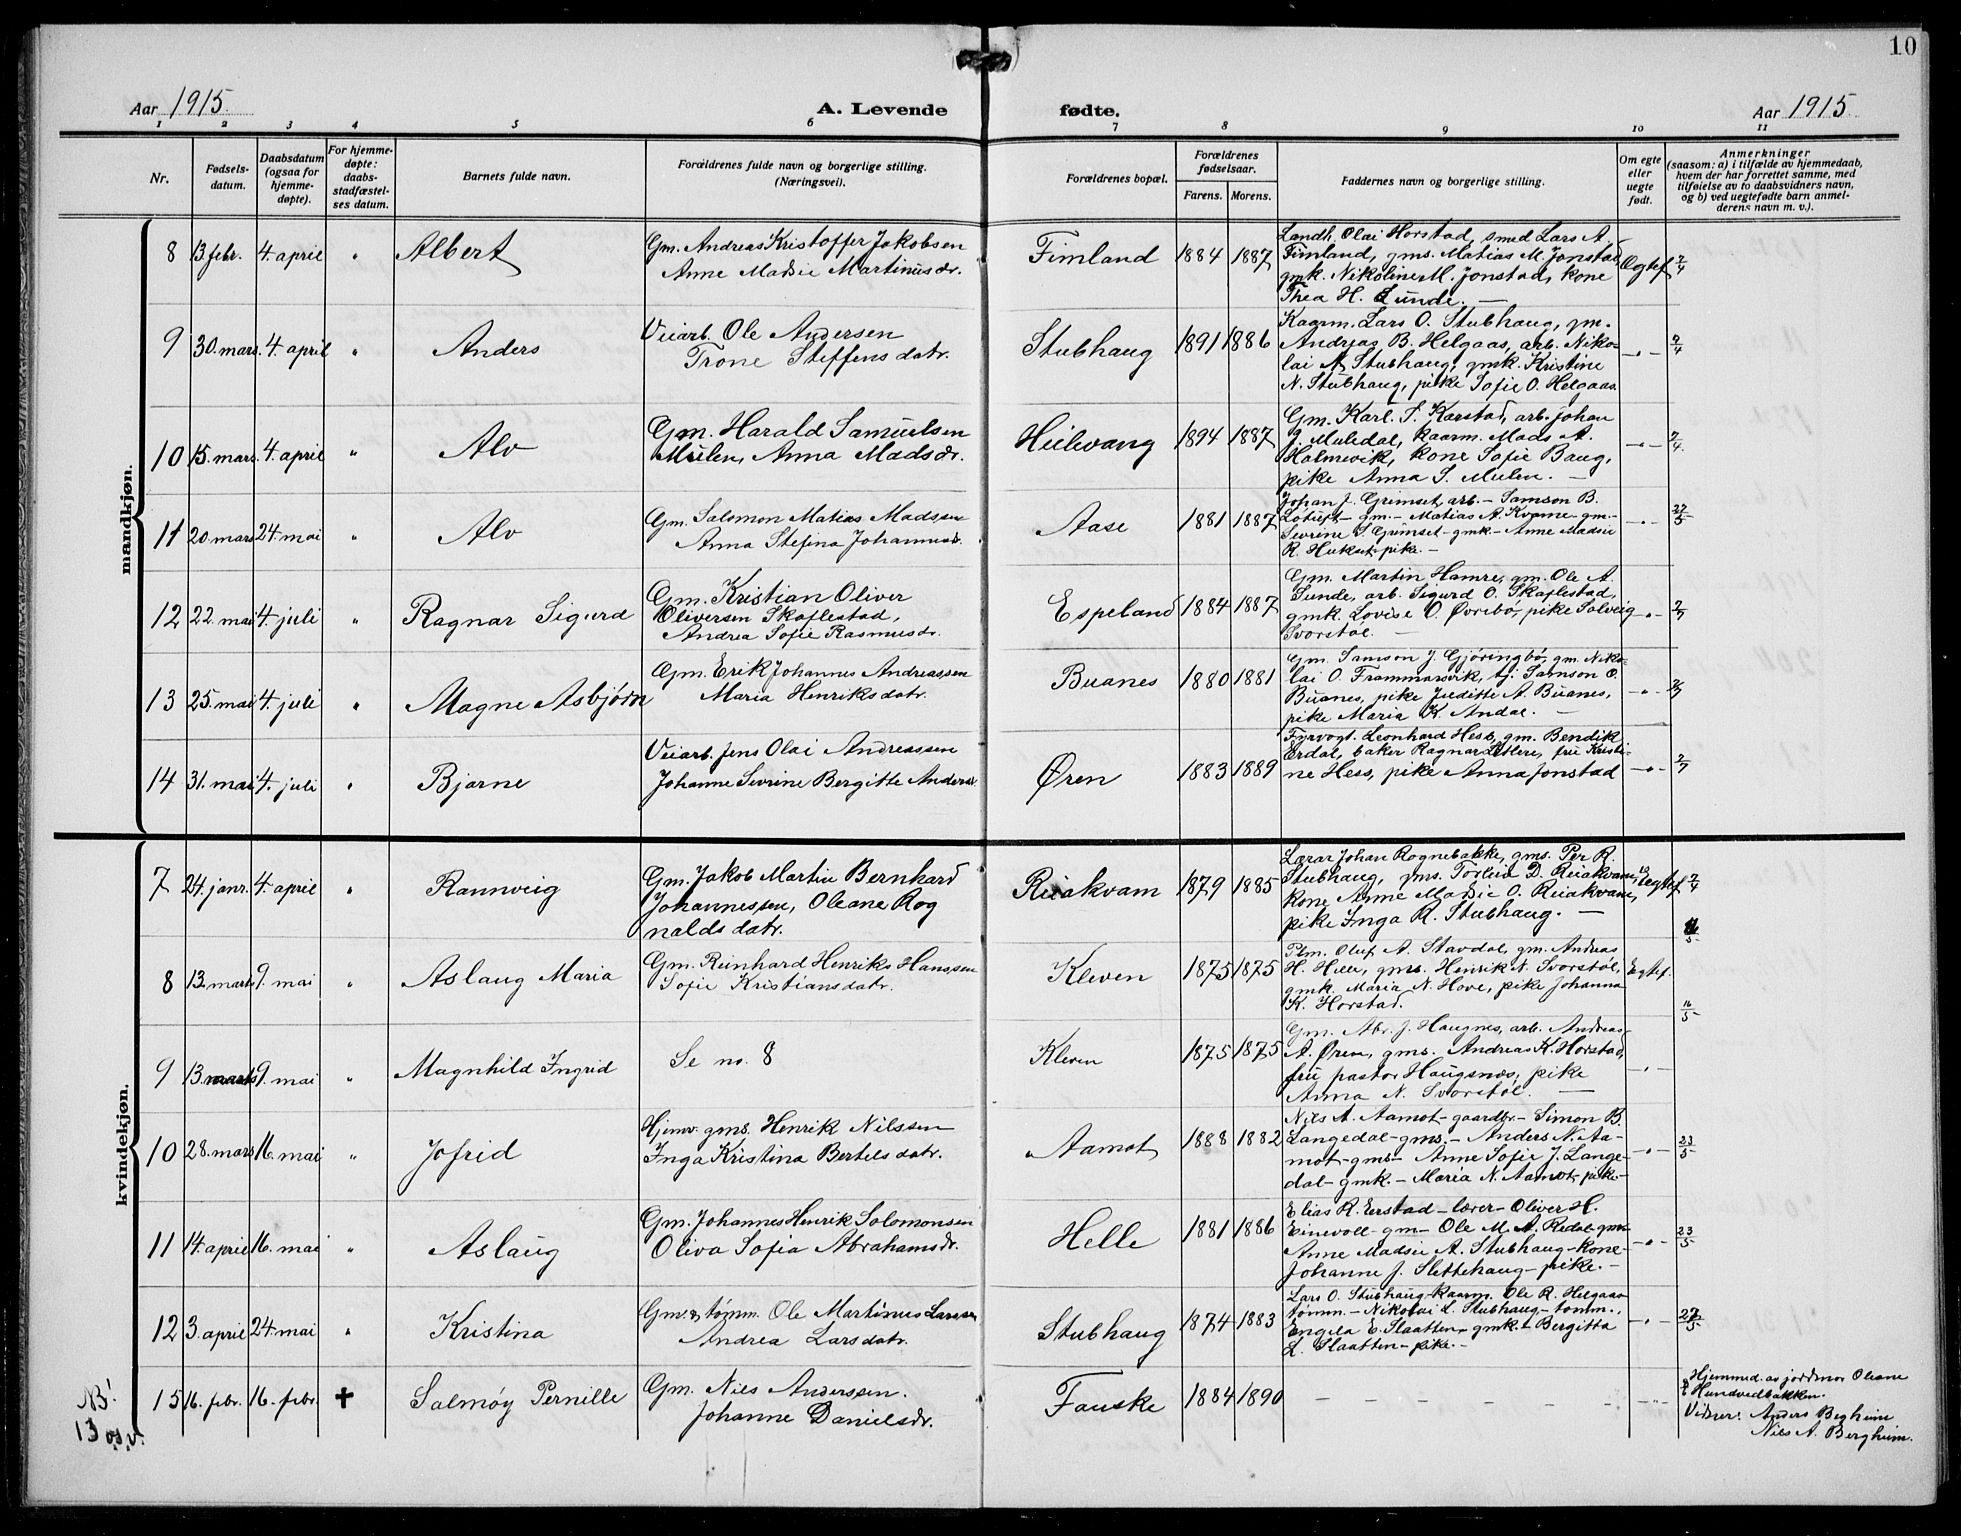 10
Aar 1915.
A. Levende
fødte.
Aar 1915.
1 2 3 4 5 6 7 8 9 10 11
Nr.
Fødsels-
datum.
Daabsdatum
(ogsaa for
hjemme-
døpte).
For hjemme-
døpte:
daabs-
stadfæstel-
ses datum.
Barnets fulde navn.
Forældrenes fulde navn og borgerlige stilling.
(Næringsvei).
Forældrenes bopæl.
Forældrenes
fødselsaar.
Farens. Morens.
Faddernes navn og borgerlige stilling.
Om egte
eller
uegte
født.
Anmerkninger
(saasom: a) i tilfælde av hjemmedaab,
hvem der har forrettet samme, med
tilføielse av to daabsvidners navn,
og b) ved uegtefødte barn anmel-
derens navn m. v.).
mandkjøn.
8 13. febr. 4. april " Albert
Gm. Andreas Kristoffer Jakobsen
Anne Madsie Martinusdr.
Fimland 1884 1887
Landh. Olai Horstad, smed Lars A.
Fimland, gms. Matias M. Jonstad,
gmk. Nikoline M. Jonstad, kone
Thea H. Lunde. —
Egtef. 7/4
9 30. mars. 4. april " Anders
Veiarb. Ole Andersen
Trone Steffensdatr.
Stubhaug 1891 1886
Kaarm. Lars O. Stubhaug, gm.
Andreas B. Helgaas, arb. Niko-
lai A. Stubhaug, gmk. Kristine
N. Stubhaug, pike Sofie O. Helgaas.
—"— 7/4
10 15. mars. 4. april " Alv
Gm. Harald Samuelsen
Mulen, Anna Madsdr.
Heilevang 1894 1887
Gm. Karl. S. Karstad, arb. Johan
J. Muledal, kaarm. Mads A.
Holmevik, kone Sofie Baug,
pike Anna S. Mulen. —
—"— 7/4.
11 20. mars 24. mai " Alv
Gm. Salomon Matias Madssen
Anna Stefina Johannesdr.
Aase 1881 1887
Johan J. Grimset, arb. — Samson B.
Lotuft — gm. — Matias A. Kvame — gm. —
Sevrine S. Grimset — gmk. — Anne Madsie
R. Hukset, pike. —
—"— 27/5
12 22. mai 4. juli " Ragnar Sigurd
Gm. Kristian Oliver
Oliversen Skaflestad,
Andrea Sofie Rasmusdr.
Espeland 1884 1887
Gm. Martin Hamre, gm. Ole A.
Sunde, arb. Sigurd O. Skaflestad,
gmk. Lovise O. Øvrebø, pike Solveig
Svorstøl. —
—"— 7/7
13 25. mai 4. juli " Magne Asbjørn
Gm. Erik Johannes Andreassen
Maria Henriksdatr.
Buanes 1880 1881
Gm. Samson J. Gjøringbø, gm. Niko-
lai O. Frammarsvik, tj. Samson O.
Buanes, pike Juditte A. Buanes,
pike Maria K. Andal. —
—"— 7/7
14 31. mai 4. juli " Bjarne
Veiarb. Jens Olai Andreassen
Johanne Sevrine Bergitte Andersdr.
Øren 1883 1889
Fyrvogt. Leonhard Hess, gm. Bendik
Erdal, baker Ragnar Pettere, fru Kristi-
ne Hess, pike Anna Jonstad
—"— 7/7
kvindekjøn.
7 24. janr. 4. april " Rannveig
Gm. Jakob Martin Bernhard
Johannessen, Oleane Rog
naldsdatr.
Reiakvam 1879 1885
Lærar Johan Rognebakke, gms. Per R.
Stubhaug, gms. Torleiv D. Reiakvam,
kone Anne Madsie O. Reiakvam,
pike Inga R. Stubhaug. —
uegtef. 7/4
8 13. mars 9. mai " Aslaug Maria
Gm. Reinhard Henriks Hanssen
Sofie Kristiansdatr.
Kleven 1875 1875
Plm. Oluf A. Stavdal, gm. Andreas
H. Hille, gms. Henrik N. Svorstøl,
gmk. Maria N. Hove, pike Johanna
K. Horstad.
Egtef. 16/5
9 13. mars 9. mai " Magnhild Ingrid
Se no. 8
Kleven 1875 1875
Gm. Abr. J. Haugnes, arb. Andreas
A. Øren, gms. Andreas K. Horstad,
fru pastor Haugsnæs, pike
Anna N. Svorstøl. —
—"— 16/5
10 28. mars 16. mai " Jofrid
Hjemv. gms. Henrik Nilssen
Inga Kristina Bertelsdatr.
Aamot 1888 1882
Nils A. Aamot — gaardbr. — Simon B.
Langedal — gms. — Anders N. Aa-
mot — gms — Anne Sofie J. Lange-
dal — gmk. — Maria N. Aamot, pike. —
—"— 23/5
11 14. april 16. mai " Aslaug
Gm. Johannes Henrik Solomonsen
Oliva Sofia Abrahamsdr.
Helle 1881 1886
Elias R. Eerstad — lærer — Oliver H.
Einevoll — gm — Ole M. A. Redal — gm
Anne Madsie A. Stubhaug — kone —
Johanne J. Slettehaug — pike. —
—"— 23/5
12 3. april 24. mai " Kristina
Gm. & tømm. Ole Martinus Larssen
Andrea Larsdatr.
Stubhaug 1874 1883
Lars O. Stubhaug — kaarm. Ole R. Helgaas
tømm. — Nikolai L. Stubhaug — tømm.,
Engela E. Slaatten — gmk. — Bergitta
L. Slaatten — pike. —
—"— 27/5
NB! 13 o.s.v.
15 16. febr. 16. febr. + Salmøy Pernille
Gm. Nils Anderssen.
Johanne Danielsdr.
Fauske 1884 1890
— — — — — —
Hjemmed. av jordmor Oleane
E Hundvedbakken.
Vidner: Anders Bergheim
Nils A. Bergheim.